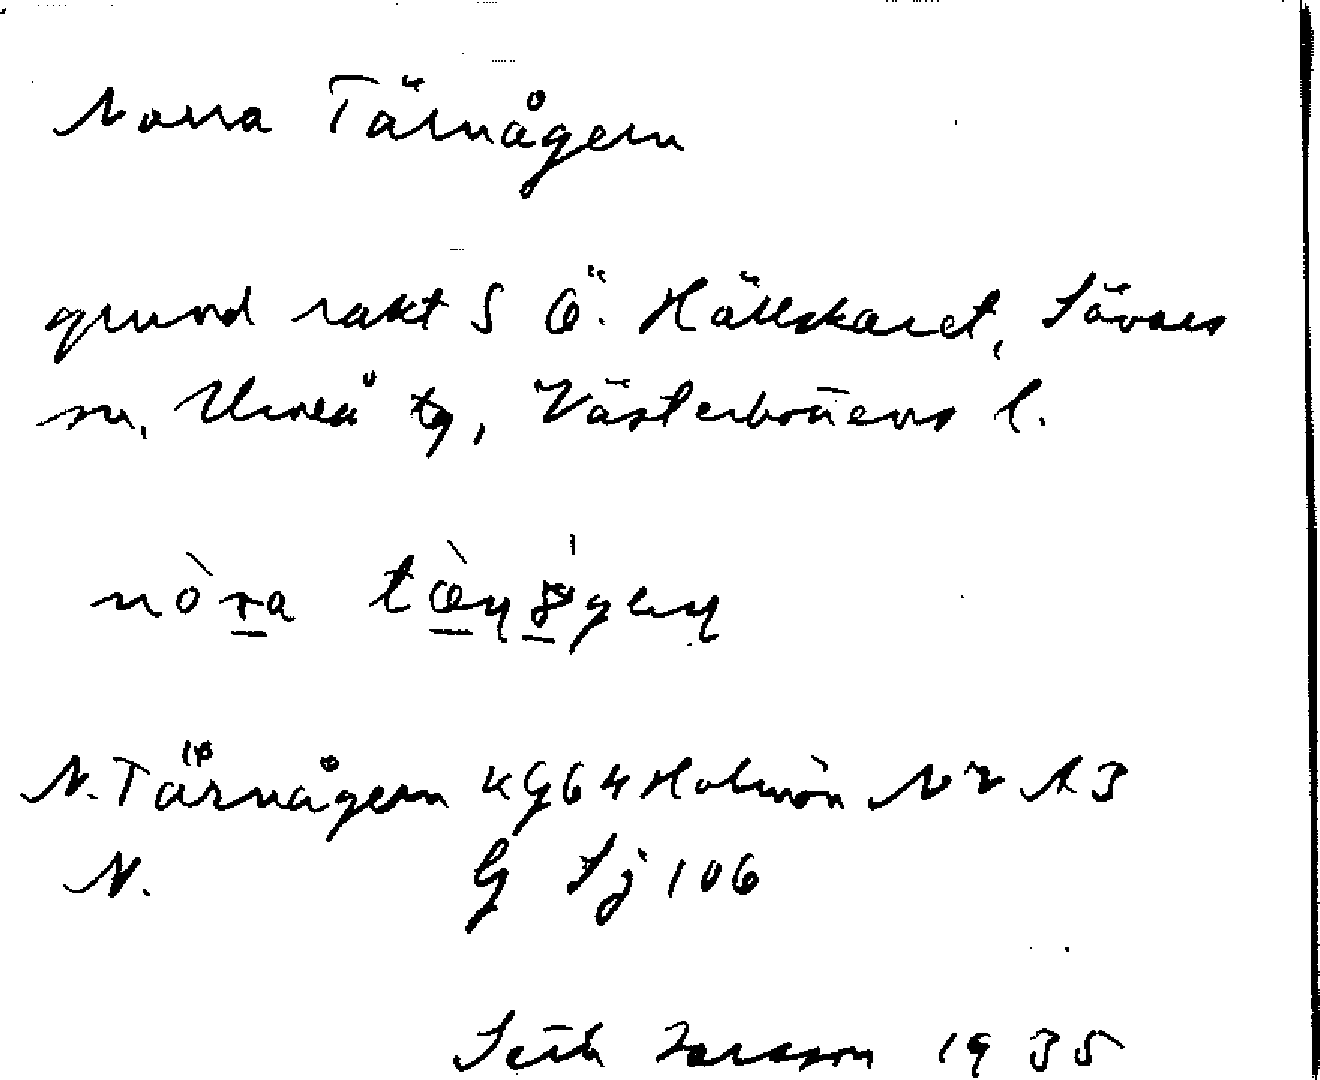 Norra Tärnågern
grund rakt S Ö. Hällskaret, Sävars
sn, Umeå tg, Västerbottens l.
nòra
N. Tärnågern KG64 Holmön NV A3
N. G Sj 106
Seth Larsson 1935